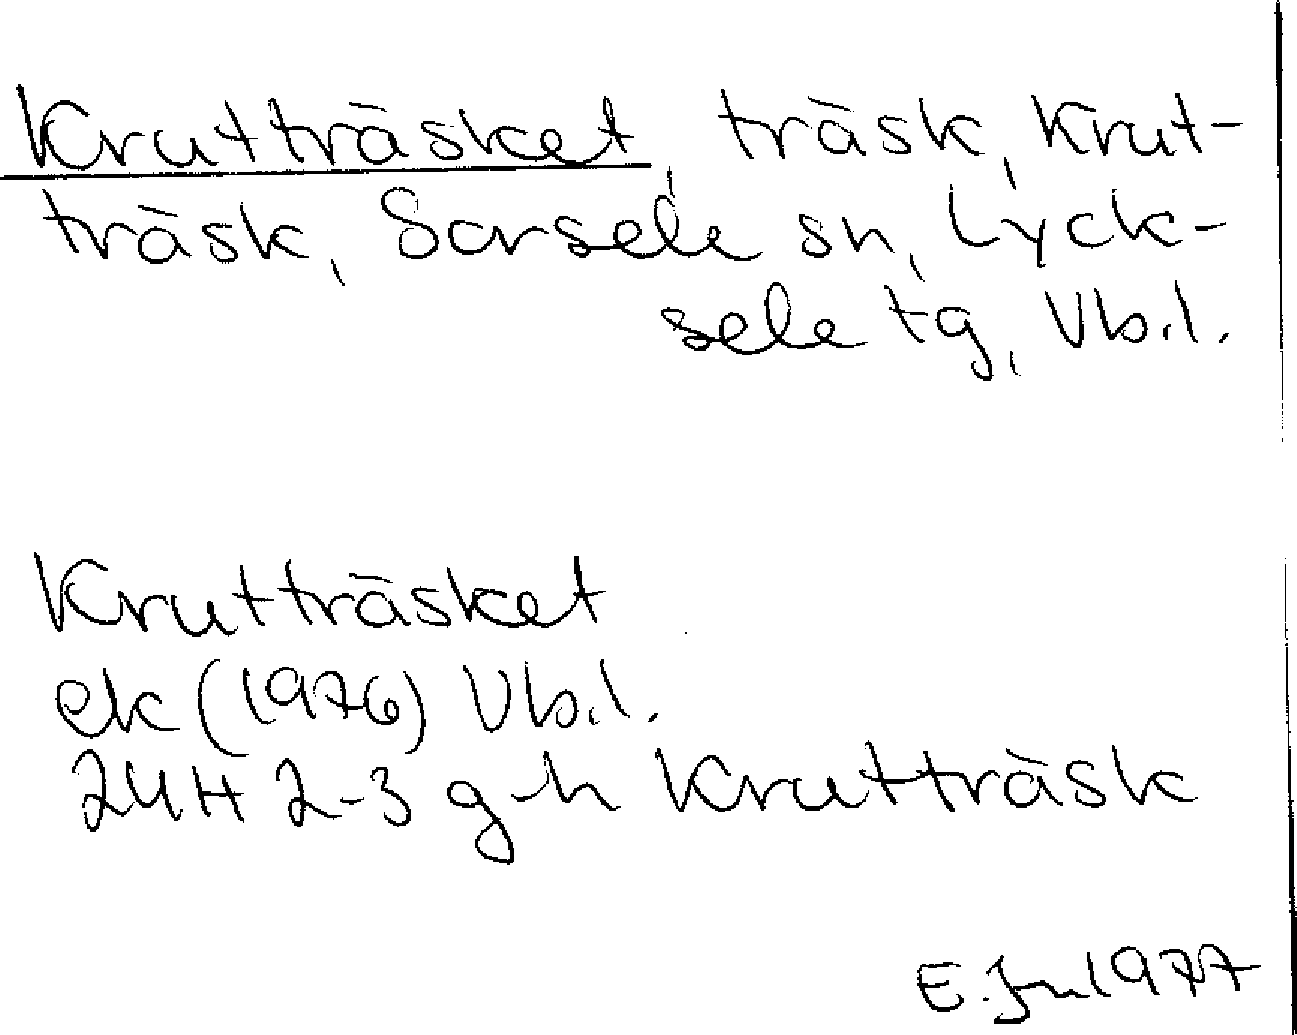 Krutträsket, träsk, Krut-
träsk, Sorsele sn, Lyck-
sele tg, Vb.l.
Krutträsket
ek (1976) Vb.l.
24H 2-3 g-h Krutträsk
E. 1977